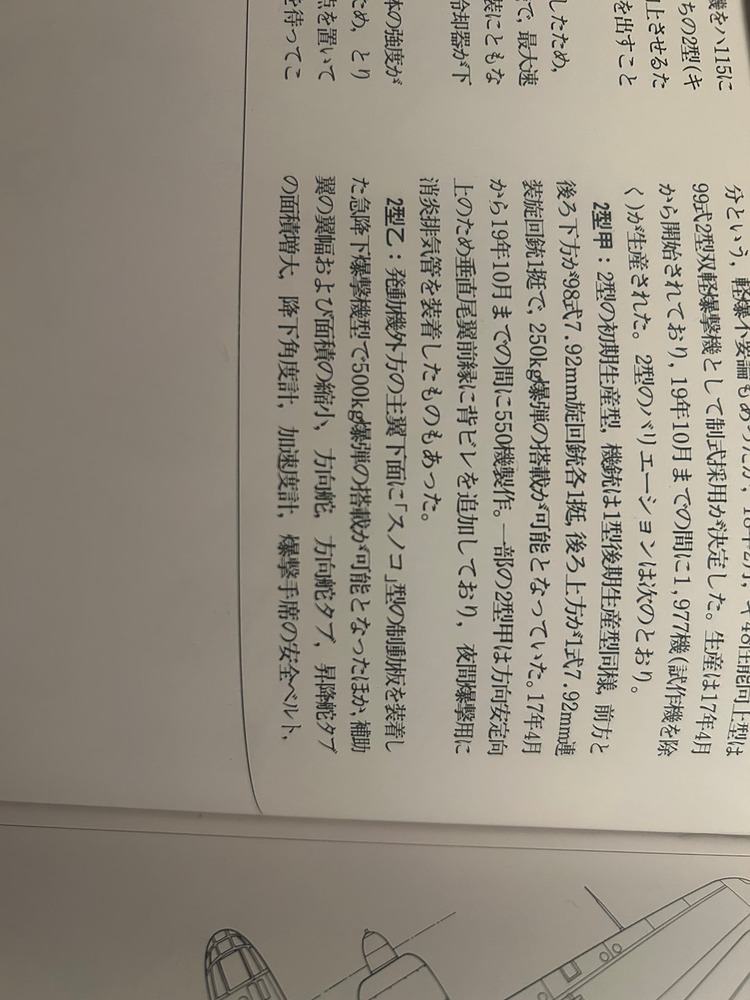 機をハ115に
ちの2型(キ
上させるた
を出すこと
したため,
で, 最大速
装にともな
冷却器が下
体の強度が
ため, とり
点を置いて
を待ってこ
分という, 軽爆不要論もあったが, 18年2月, キ48性能向上型は
99式2型双軽爆撃機として制式採用が決定した。生産は17年4月
から開始されており, 19年10月までの間に1,977機(試作機を除
く)が生産された。2型のバリエーションは次のとおり。
2型甲：2型の初期生産型, 機銃は1型後期生産型同様, 前方と
後ろ下方が98式7.92mm旋回銃各1挺, 後ろ上方が1式7.92mm連
装旋回銃1挺で, 250kg爆弾の搭載が可能となっていた。17年4月
から19年10月までの間に550機製作。一部の2型甲は方向安定向
上のため垂直尾翼前縁に背ビレを追加しており, 夜間爆撃用に
消炎排気管を装着したものもあった。
2型乙：発動機外方の主翼下面に「スノコ」型の制動板を装着し
た急降下爆撃機型で500kg爆弾の搭載が可能となったほか, 補助
翼の翼幅および面積の縮小, 方向舵, 方向舵タブ, 昇降舵タブ
の面積増大, 降下角度計, 加速度計, 爆撃手席の安全ベルト,